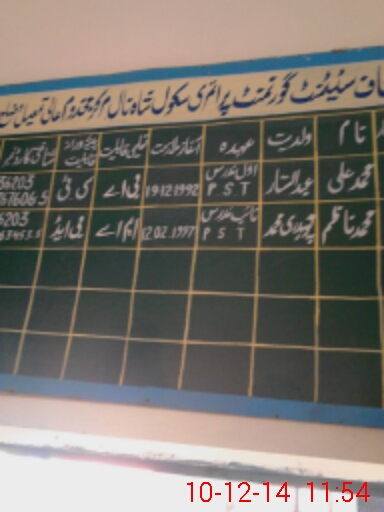 سٹیٹمنٹ گورنمنٹ پرائمری سکول شاہ تال مرکز مخدوم عالی تحصیل
نام ولدیت عہدہ آغاز ملازمت تعلیمی قابلیت پیشہ ورانہ قابلیت شناختی کارڈ نمبر
محمد علی عبدالستار اول مدرس PST 19.12.1992 بی اے سی ٹی 36203
محمد ناظم چوہدری محمد نائب مدرس PST 12.02.1997 ایم اے بی ایڈ
10-12-14 11:54